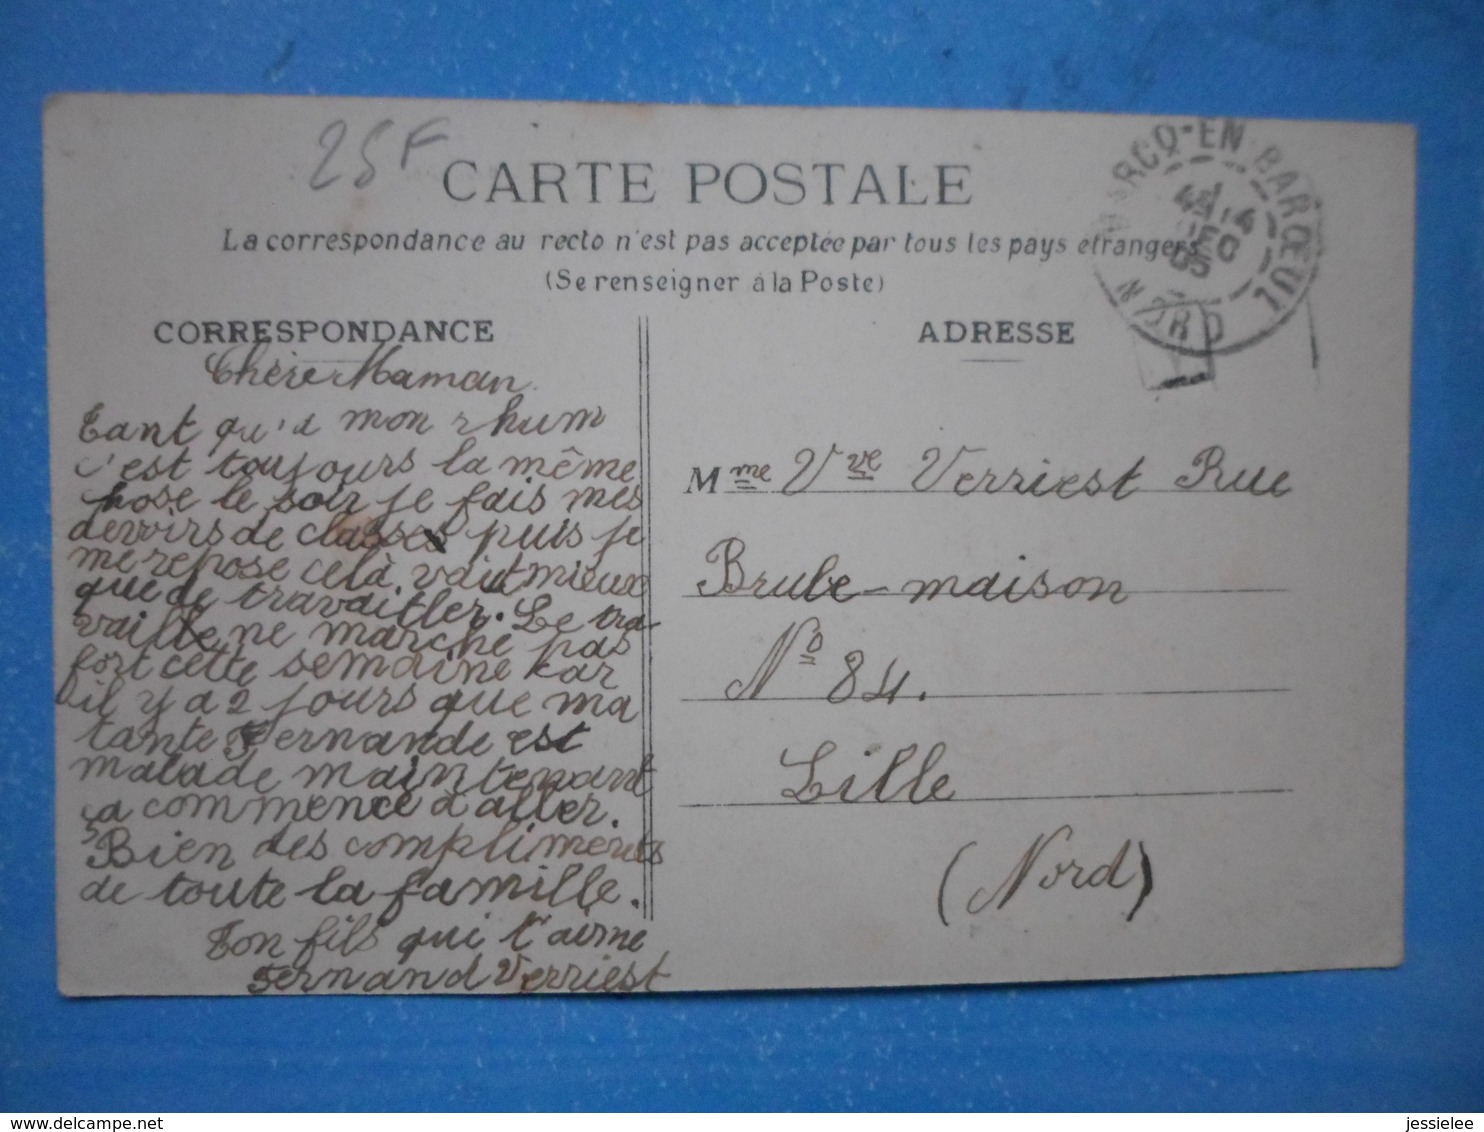 25F
CARTE POSTALE
La correspondance au recto n'est pas acceptée par tous les pays étrangers
(Se renseigner à la Poste)
MARCQ-EN-BARŒUL
NORD
05
CORRESPONDANCE
Chère Maman
Tant qu'à mon rhum
c'est toujours la même
chose le soir je fais mes
devoirs de classes puis je
me repose celà vaut mieux
que de travailler. Le tra-
vaille ne marche pas
fort cette semaine kar
il y a 2 jours que ma
tante Fernande est
malade maintenant
ça commence à aller.
Bien des compliments
de toute la famille.
Ton fils qui t'aime
Fernand Verriest
ADRESSE
Mme Vve Verriest Rue
Brule-maison
No 84.
Lille
(Nord)
jessielee